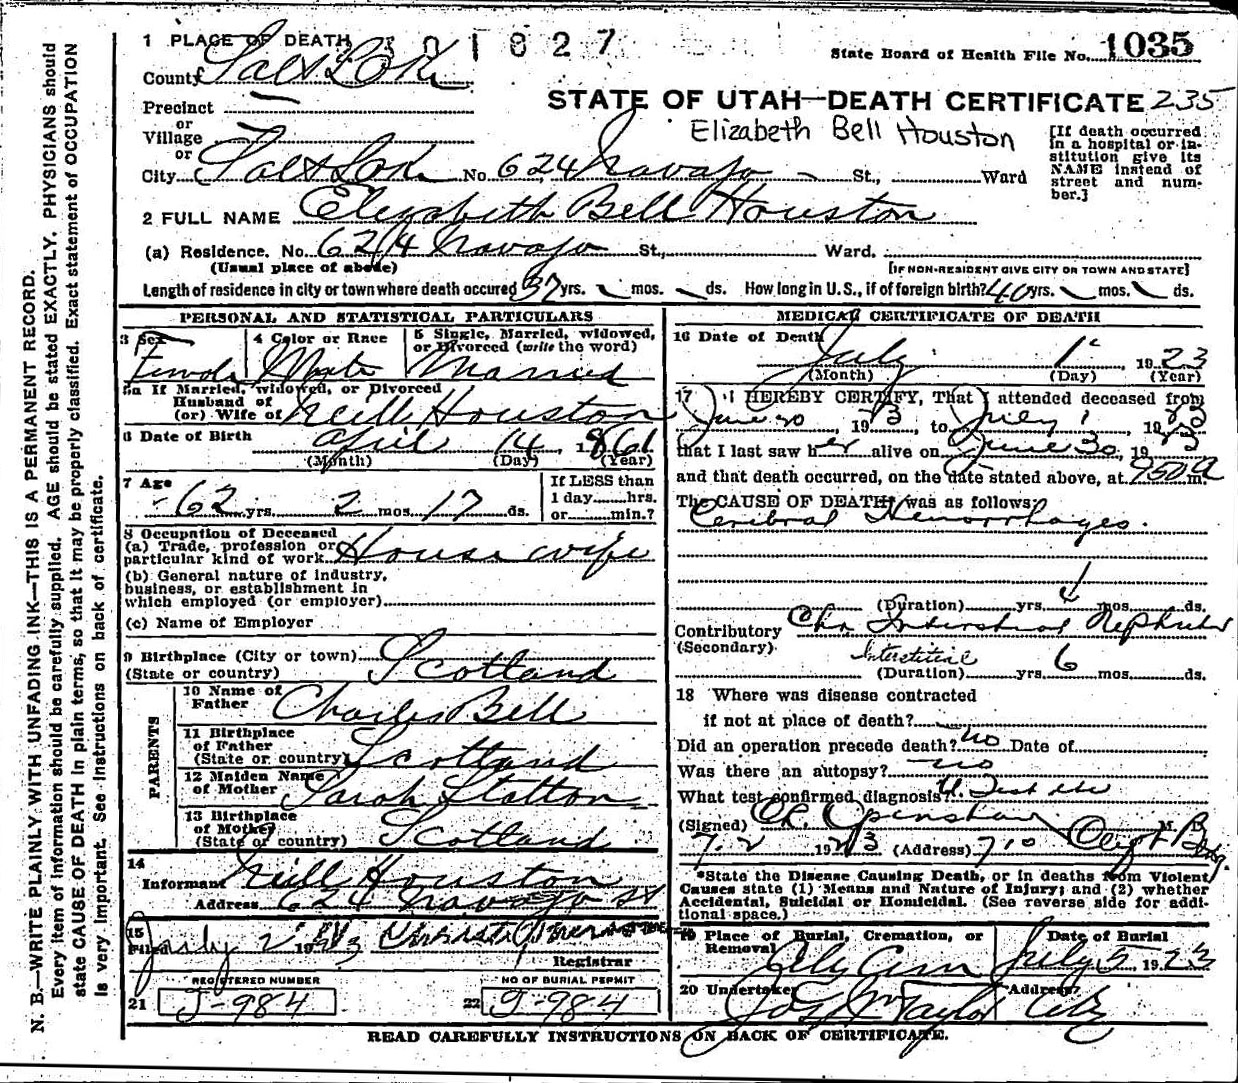 N. B.—WRITE PLAINLY WITH UNFADING INK—THIS IS A PERMANENT RECORD.
Every item of information should be carefully supplied. AGE should be stated EXACTLY. PHYSICIANS should
state CAUSE OF DEATH in plain terms, so that it may be properly classified. Exact statement of OCCUPATION
is very important. See instructions on back of certificate.
1 PLACE OF DEATH 301827
State Board of Health File No. 1035
County Salt Lake
STATE OF UTAH—DEATH CERTIFICATE 235
Precinct
or
Village
or
Elizabeth Bell Houston
[If death occurred
in a hospital or in-
stitution give its
NAME instead of
street and num-
ber.]
City Salt Lake No. 624 Navajo St., Ward
2 FULL NAME Elizabeth Bell Houston
(a) Residence. No. 624 Navajo St., Ward.
(Usual place of abode) [IF NON-RESIDENT GIVE CITY OR TOWN AND STATE]
Length of residence in city or town where death occured 37 yrs. mos. ds. How long in U. S., if of foreign birth? 40 yrs. mos. ds.
PERSONAL AND STATISTICAL PARTICULARS
3 Sex 4 Color or Race 5 Single, Married, widowed,
or Divorced (write the word)
Female White Married
5a If Married, widowed, or Divorced
Husband of
(or) Wife of Neill Houston
6 Date of Birth April 14, 1861
(Month) (Day) (Year)
7 Age 62 yrs. 2 mos. 17 ds.
If LESS than
1 day hrs.
or min.?
8 Occupation of Deceased
(a) Trade, profession or
particular kind of work House wife
(b) General nature of industry,
business, or establishment in
which employed (or employer)
(c) Name of Employer
9 Birthplace (City or town)
(State or country) Scotland
PARENTS
10 Name of
Father Charles Bell
11 Birthplace
of Father
(State or country) Scotland
12 Maiden Name
of Mother Sarah Statton
13 Birthplace
of Mother
(State or country) Scotland
14
Informant Neill Houston
Address 624 Navajo St
15
Filed July 2 1923
Registrar
REGISTERED NUMBER NO OF BURIAL PERMIT
21 J-984 22 J-984
MEDICAL CERTIFICATE OF DEATH
16 Date of Death July 1, 1923
(Month) (Day) (Year)
17 I HEREBY CERTIFY, That I attended deceased from
June 20, 1923, to July 1, 1923
that I last saw her alive on June 30, 1923
and that death occurred, on the date stated above, at 950 a m.
The CAUSE OF DEATH was as follows:
Cerebral Hemorrhages.
(Duration) yrs. mos. ds.
Contributory Chr Interstitial Nephritis
(Secondary) Interstitial
(Duration) yrs. 6 mos. ds.
18 Where was disease contracted
if not at place of death?
Did an operation precede death? no Date of
Was there an autopsy? no
What test confirmed diagnosis?
(Signed) Openshaw M. D.
7-2 1923 (Address) 710 Clift Bldg.
*State the Disease Causing Death, or in deaths from Violent
Causes state (1) Means and Nature of Injury; and (2) whether
Accidental, Suicidal or Homicidal. (See reverse side for addi-
tional space.)
19 Place of Burial, Cremation, or
Removal
Date of Burial
City Cem July 5, 1923
20 Undertaker Address
Jos Wm Taylor City
READ CAREFULLY INSTRUCTIONS ON BACK OF CERTIFICATE.